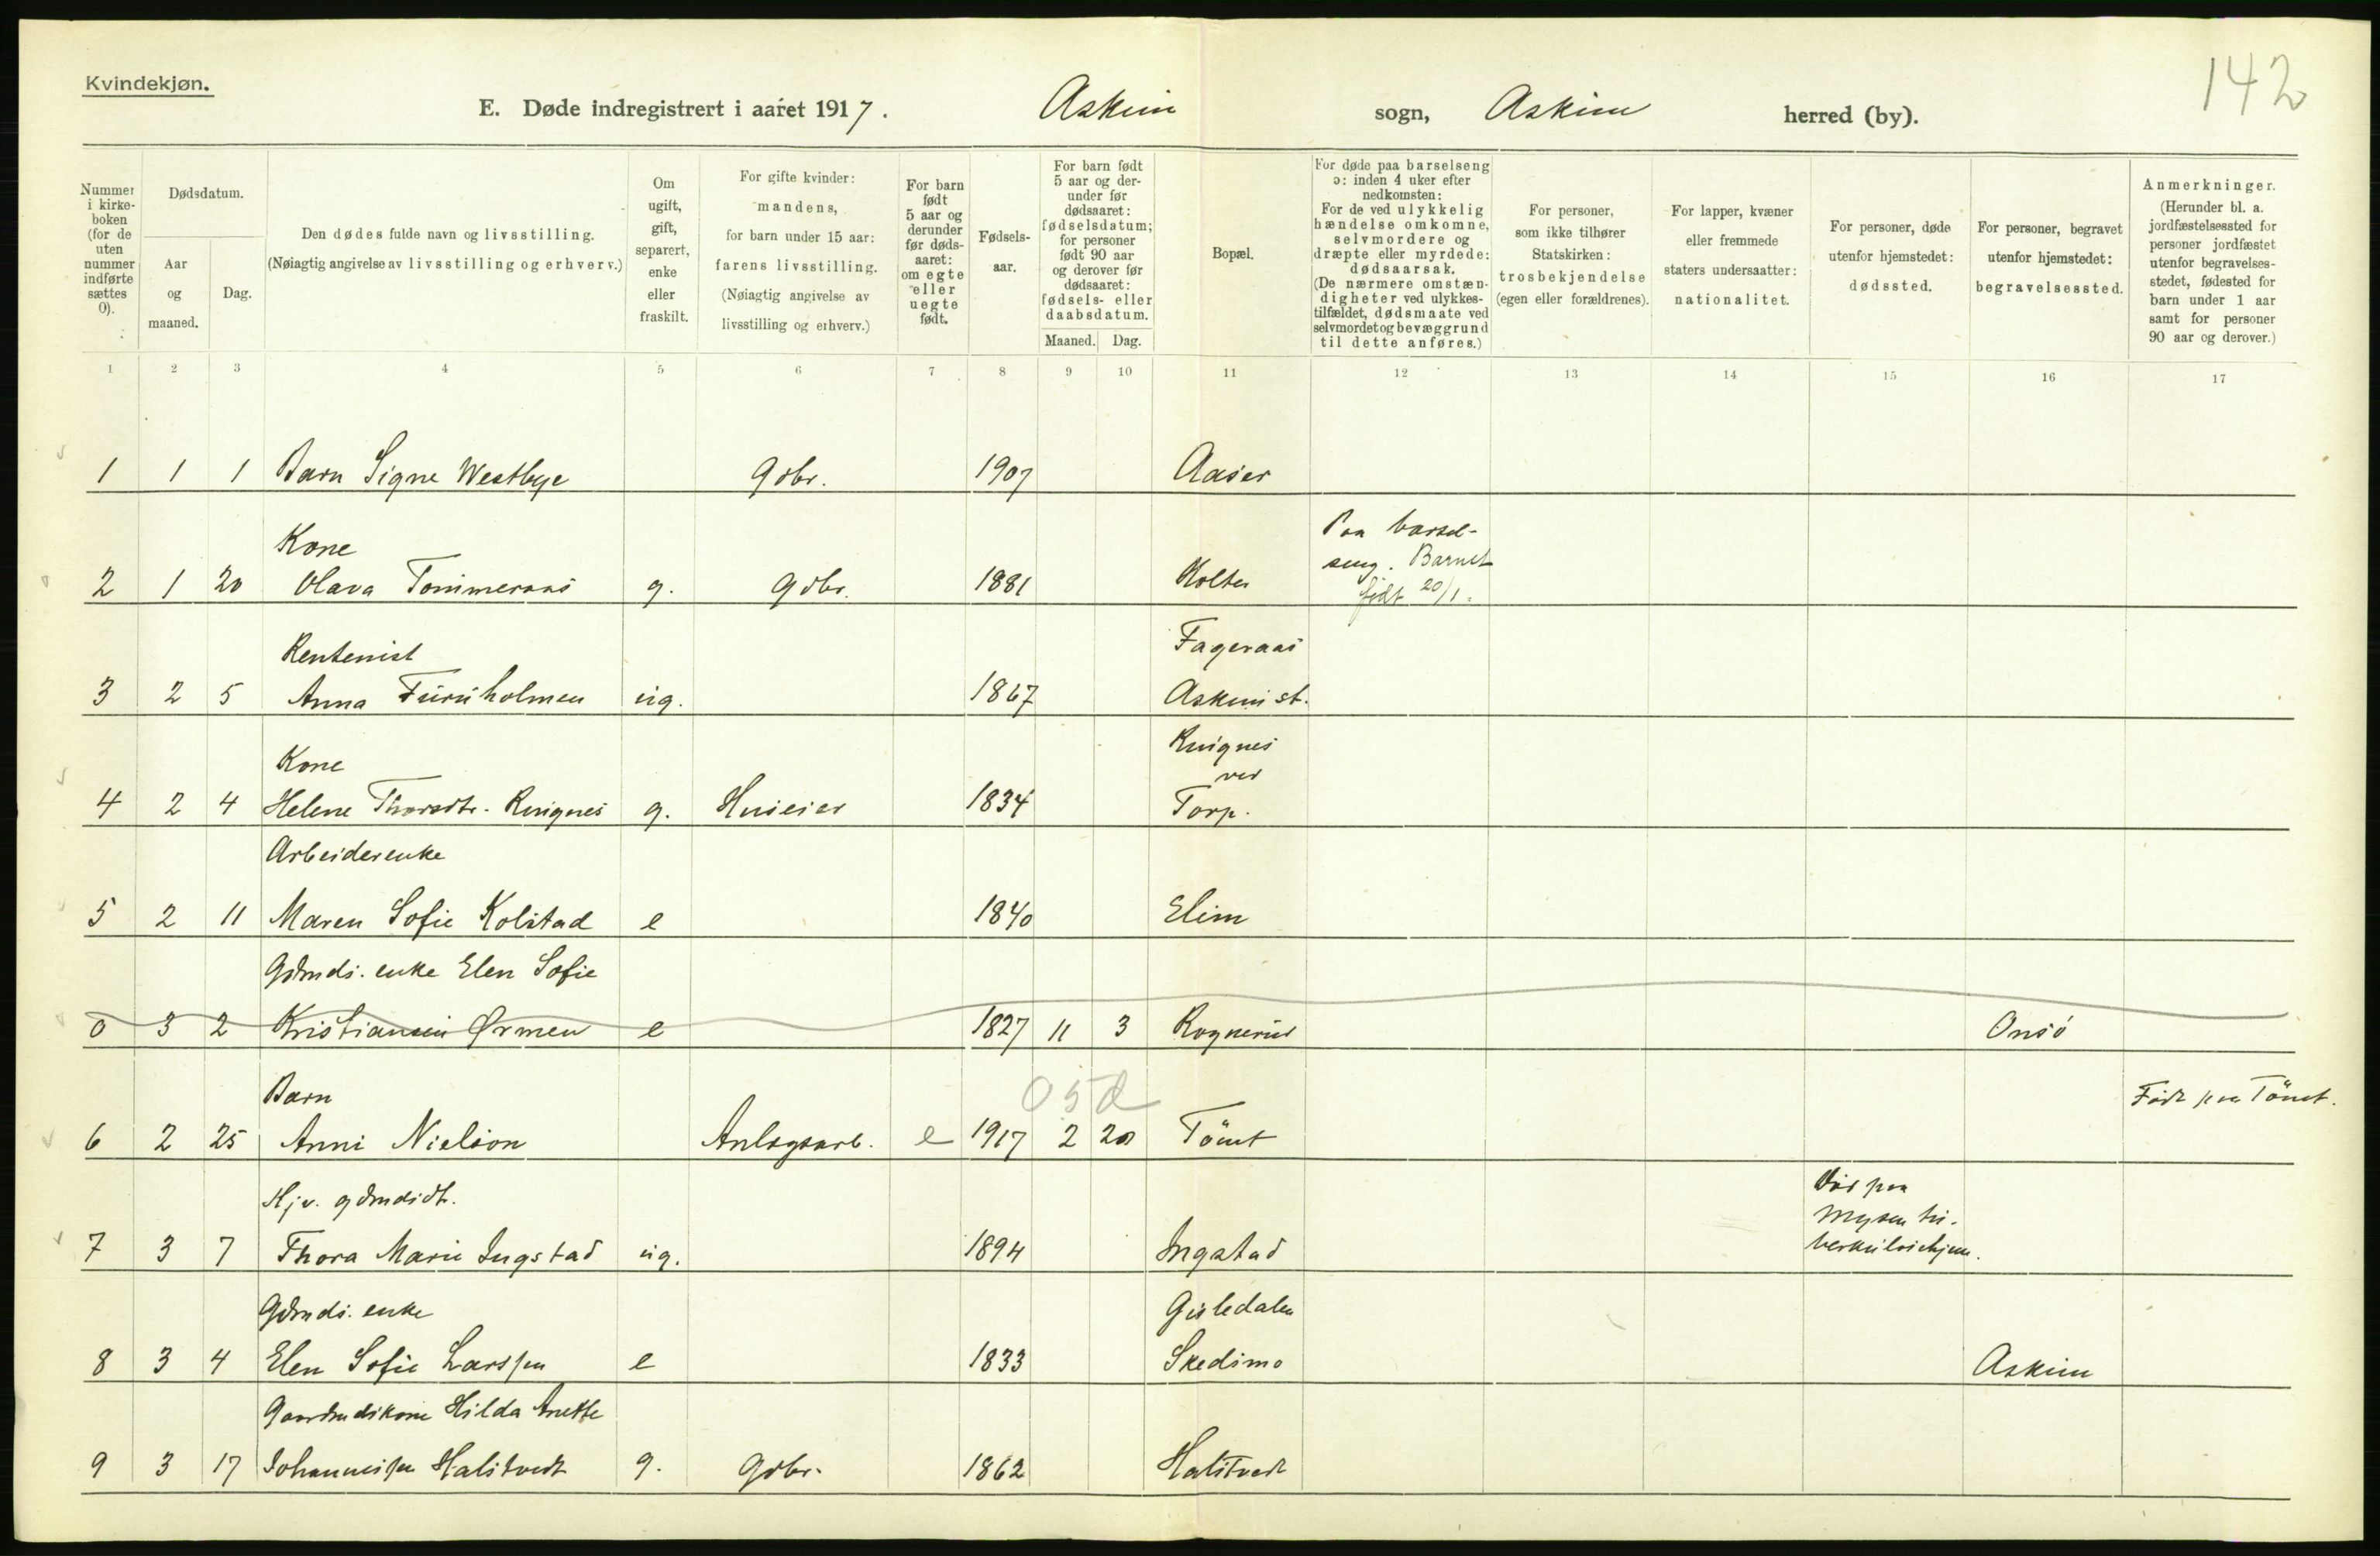 142
Kvindekjøn.
E. Døde indregistrert i aaret 1917. Askim sogn, Askim herred (by).
Nummer i kirke-
boken
(for de
uten
nummer
indførte
sættes
0).
Dødsdatum.
Aar
og
maaned.
Dag.
Den dødes fulde navn og livsstilling.
(Nøiagtig angivelse av livsstilling og erhverv.)
Om
ugift,
gift,
separert,
enke
eller
fraskilt.
For gifte kvinder:
mandens,
for barn under 15 aar:
farens livsstilling.
(Nøiagtig angivelse av
livsstilling og erhverv.)
For barn
født
5 aar og
derunder
før døds-
aaret:
om egte
eller
uegte
født.
Fødsels-
aar.
For barn født
5 aar og der-
under før
dødsaaret:
fødselsdatum;
for personer
født 90 aar
og derover før
dødsaaret:
fødsels- eller
daabsdatum.
Maaned. Dag.
Bopæl.
For døde paa barselseng
ɔ: inden 4 uker efter
nedkomsten:
For de ved ulykkelig
hændelse omkomne,
selvmordere og
dræpte eller myrdede:
dødsaarsak.
(De nærmere omstæn-
digheter ved ulykkes-
tilfældet, dødsmaate ved
selvmordet og bevæggrund
til dette anføres.)
For personer,
som ikke tilhører
Statskirken:
trosbekjendelse
(egen eller forældrenes).
For lapper, kvæner
eller fremmede
staters undersaatter:
nationalitet.
For personer, døde
utenfor hjemstedet:
dødssted.
For personer, begravet
utenfor hjemstedet:
begravelsessted.
Anmerkninger.
(Herunder bl. a.
jordfæstelsessted for
personer jordfæstet
utenfor begravelses-
stedet, fødested for
barn under 1 aar
samt for personer
90 aar og derover.)
1 2 3 4 5 6 7 8 9 10 11 12 13 14 15 16 17
1 1 1 Barn Signe Westbye Gdbr. 1907 Aaser
Kone Paa barsel-
seng. Barnet
2 1 20 Olava Tømmeraas g. Gdbr. 1881 Holter født 20/1.
Rentenist Fageraas
3 2 5 Anna Furuholmen ug. 1867 Askim st.
Kone Ringnes
ved
4 2 4 Helene Thorsdtr. Ringnes g. Huseier 1834 Torp.
Arbeiderenke
5 2 11 Maren Sofie Kolstad e 1840 Elim
Gdmds. enke Elen Sofie
0 3 2 Kristiansen Ørmen e 1827 11 3 Rognerud Onsö
Barn 05d Født paa Tömt.
6 2 25 Anni Nielson Anlegsarb. e 1917 2 20 Tömt
Hjv. gdmdsdt. Död paa
Mysen tu-
7 3 7 Thora Marie Ingstad ug. 1894 Ingstad berkulosehjem.
Gdmds. enke Gisledalen
8 3 4 Elen Sofie Larssen e 1833 Skedsmo Askim
Gaardmdskone Hilda Anette
9 3 17 Johannessen Halstvedt g. Gdbr. 1862 Halstvedt